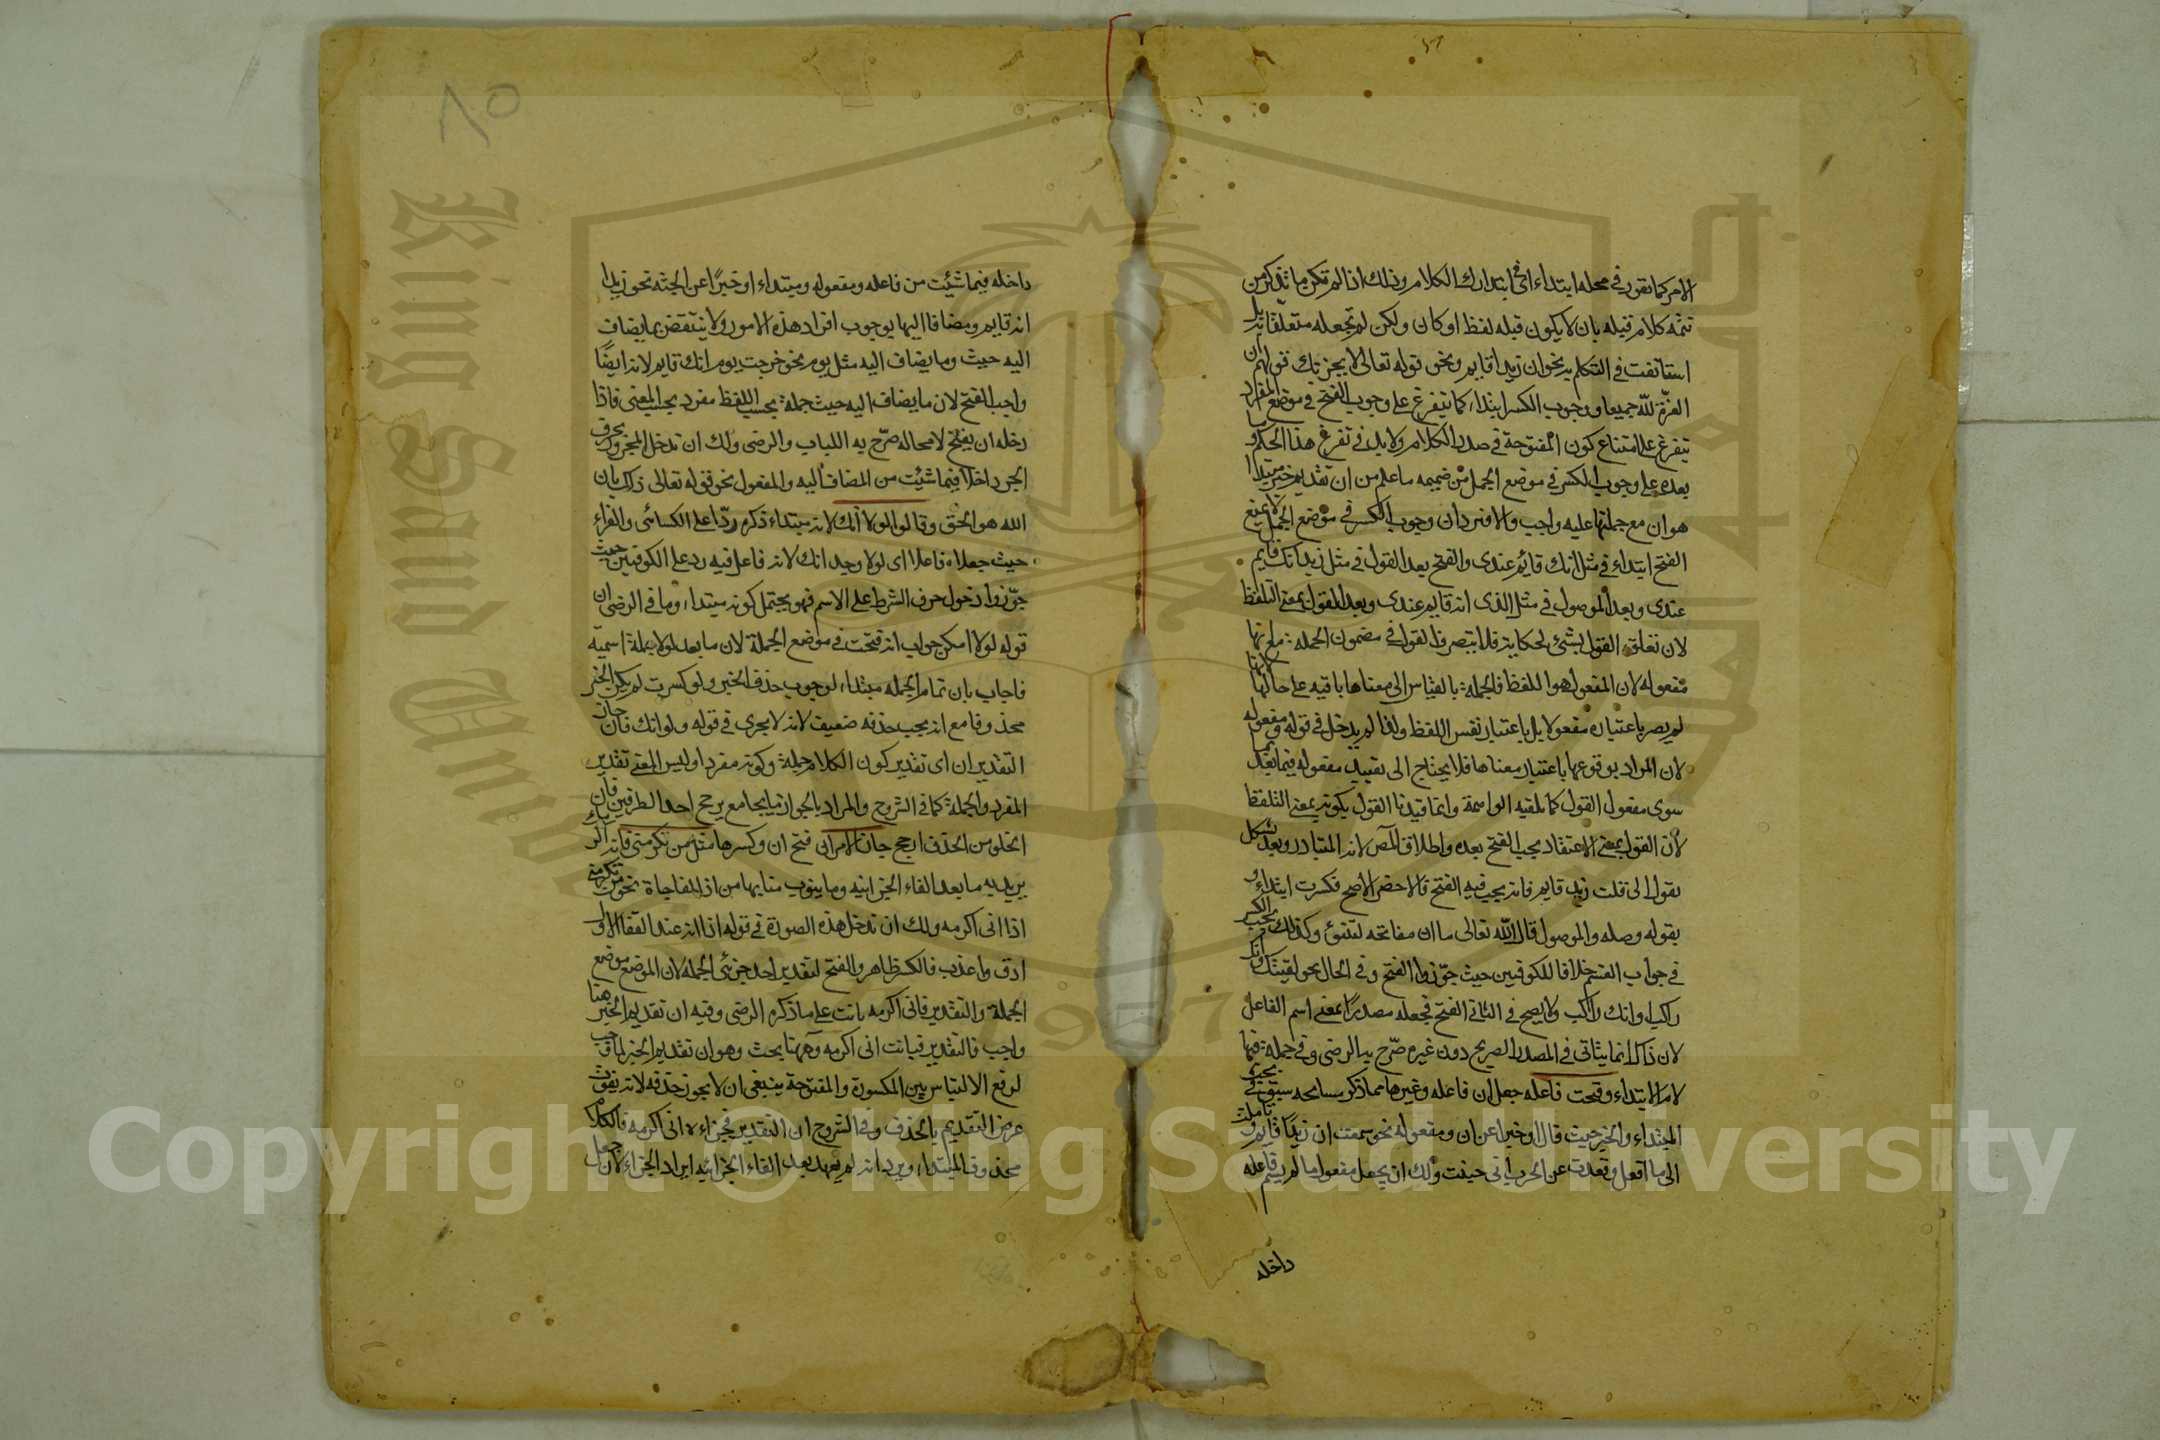 الامر كما تقرر في محله ابتداء اي ابتدا بك الكلام وذلك اذا لم تكن ما تذكر من
تتمة كلام قبله بان لا يكون قبله لفظ او كان ولكن لم تجعله متعلقا به بل
استانفت في التكلم به نحو ان زيدا قايم ونحو قوله تعالى لا يحزنك قولهم ان
العزة لله جميعا ووجوب الكسر ابتداء كما يتفرع على وجوب الفتح في موضع المفرد
يتفرع على امتناع كون المفتوحة في صدر الكلام ولا بد في تفرع هذا الحكم وما
بعده على وجوب الكسر في موضع الجمل من ضميمه ما علم من ان تقديم خبر مبتدأ
هو ان مع جملتها عليه واجب والا فنردان وجوب الكسر في موضع الجمل لا يمنع
الفتح ابتداء في مثل انك قائم عندي والفتح بعد القول في مثل زيد انك قايم
عندي وبعد الموصول في مثل الذي انه قايم عندي وبعد القول بمعنى التلفظ
لان تعلق القول بشئ لحكايته فلا يتصرف القول في مضمون الجمله
مفعوله لان المفعول هو اللفظ فالجملة بالقياس الى معناها باقيه على حالها لانها
لم يصر باعتباره مفعولا بل باعتبار نفس اللفظ ولذا لم يدخل في قوله ومفعوله
لان المراد بوقوعها باعتبار معناها فلا يحتاج الى تقييد مفعوله فيما بعد بما
سوى مفعول القول كما يلقيه الواسمة وانما قيدنا القول بكونه بمعنى التلفظ
لان القول بمعنى الاعتقاد يجب الفتح بعده واطلاق المص لانه المتبادر وبعد يشكل
بقول الى قلت زيد قايم فانه يجب فيه الفتح فالاخصر الاصح فكسرت ابتداء و
بقوله وصله والموصول قال الله تعالى ما ان مفاتحه لتنوء وكذلك يجب الكسر
في جواب القسم خلافا للكوفيين حيث جوزوا الفتح وفي الحال نحو لقيتك وانك
راكب وانك راكب ولا يصح في الثاني الفتح فجعله مصدرا بمعنى اسم الفاعل
لان ذاك انما يتاتى في المصدر الصريح دون غيره صرح به الرضي وفي جملة فيها
لام الابتداء وفتحت فاعله جعل ان فاعله وغيرها مما ذكر مسامحه سبق في بحث
المبتداء والخبر حيث قال او خبرا عن ان ومفعوله نحو سمعت ان زيدا قايم
الى ما افعل وتعديت عن الحرب اني حيفت ولك ان يجعل مفعول ما لم يسم فاعله
داخله
٨٥
داخله فيما شئت من فاعله ومفعوله ومبتداء او خبرا عن الجثه نحو زيد
انه قايم ومضافا اليها بوجوب افراد هذه الامور ولا ينتقض بما يضاف
اليه حيث وما يضاف اليه مثل يوم نحو خرجت يوم انك قايم لانه ايضا
واجب الفتح لان ما يضاف اليه حيث جملة بحسب اللفظ مفرد بحسب المعنى فاذا
دخله ان يفتح لا محاله صرح به اللباب والرضي ولك ان تدخل المجرور بحرف
الجر داخلا فيما شئت من المضاف اليه والمفعول نحو قوله تعالى ذلك بان
الله هو الحق وقالوا لولا انك لانه مبتداء ذكره ردا على الكسائي والفراء
حيث جعلاه فاعلا اي لولا وجد انك لانه فاعل فيه رد على الكوفيين حيث
جوزوا دخول حرف الشرط على الاسم فهو يحتمل كونه مبتداء وما في الرضي ان
قوله لولا امكن جواب انه فتحت في موضع الجملة لان ما بعد لولا جملة اسمية
فاجاب بان تمام الجمله مبتداء لوجوب حذف الخبر ولو كسرت لم يكن الخبر
محذوفا مع انه يجب حذفه ضعيف لانه لا يجرى في قوله ولو انك فان جاز
التقديران اي تقدير كون الكلام جملة وكونه مفردا وليس المعنى تقدير
المفرد والجملة كما في الشروح والمراد بالجواز ما يجامع ترجح احد الطرفين فان
الخلو من الحذف ارجح جاز الامران فتح ان وكسرها مثل من يكرمني فاني اكرمه
يريد به ما بعد الفاء الجزائيه وما ينوب منابها من اذا المفاجاة نحو من يكرمني
اذا اني اكرمه ولك ان تدخل هذه الصورة في قوله اذا انه عند القفا الاولى
ادق واعذب فالكسر ظاهر والفتح لتقدير احد جزئي الجمله لان الموضع موضع
الجملة والتقدير فاني اكرمه ثابت على ما ذكره الرضي وفيه ان تقديم الخبر هنا
واجب فالتقدير فثابت اني اكرمه وههنا بحث وهو ان تقديم الخبر لما وجب
لرفع الالتباس بين المكسورة والمفتوحة ينبغي ان لا يجوز حذفه لانه يفوت
غرض التقديم بالحذف وفي الشروح ان التقدير فجزاءه اني اكرمه فالكلام
محذوف المبتداء ويرد انه لم يعهد بعد الفاء الجزائيه ايراد الجزاء لان جعل
Copyright © King Saud University
King Saud University
1957